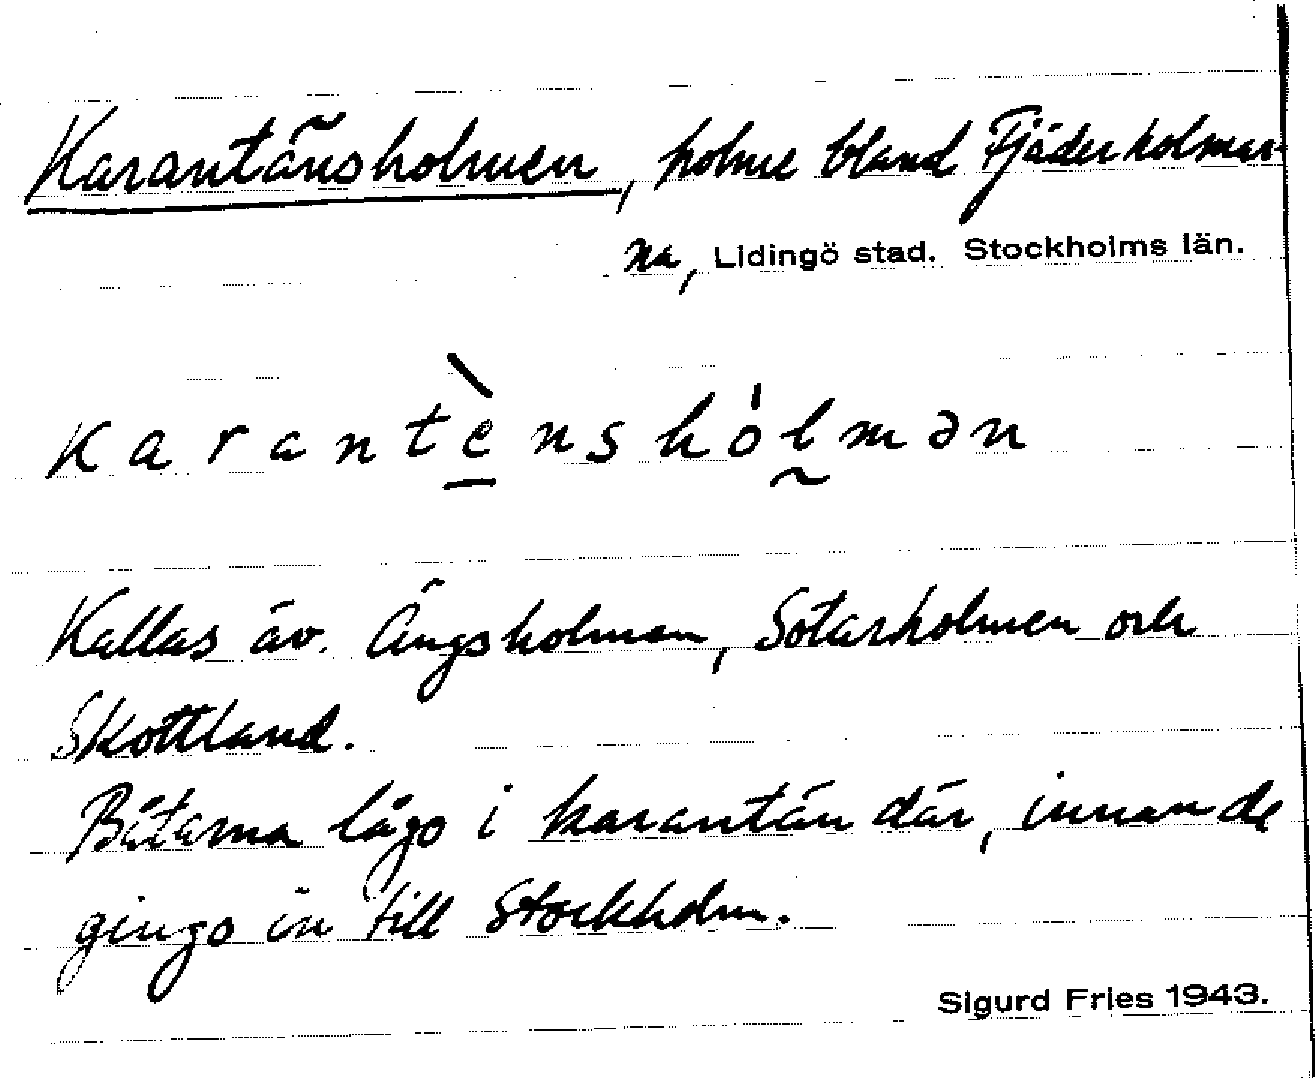 Karantänsholmen, holme bland Fjäderholmar-
na, Lidingö stad. Stockholms län.
karantènshólmən
Kallas äv. Ängsholmen, Sotarholmen och
Skottland.
Båtarna lågo i karantän där, innan de
gingo in till Stockholm.
Sigurd Fries 1943.